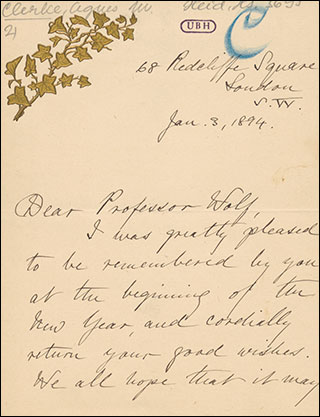 Clerke, Agnes M.
Heid. Hs. 3695
4
UBH
68 Redcliffe Square
London
S. W.
Jan. 3, 1894.
Dear Professor Wolf,
I was greatly pleased
to be remembered by you
at the beginning of the
New Year, and cordially
return your good wishes.
We all hope that it may